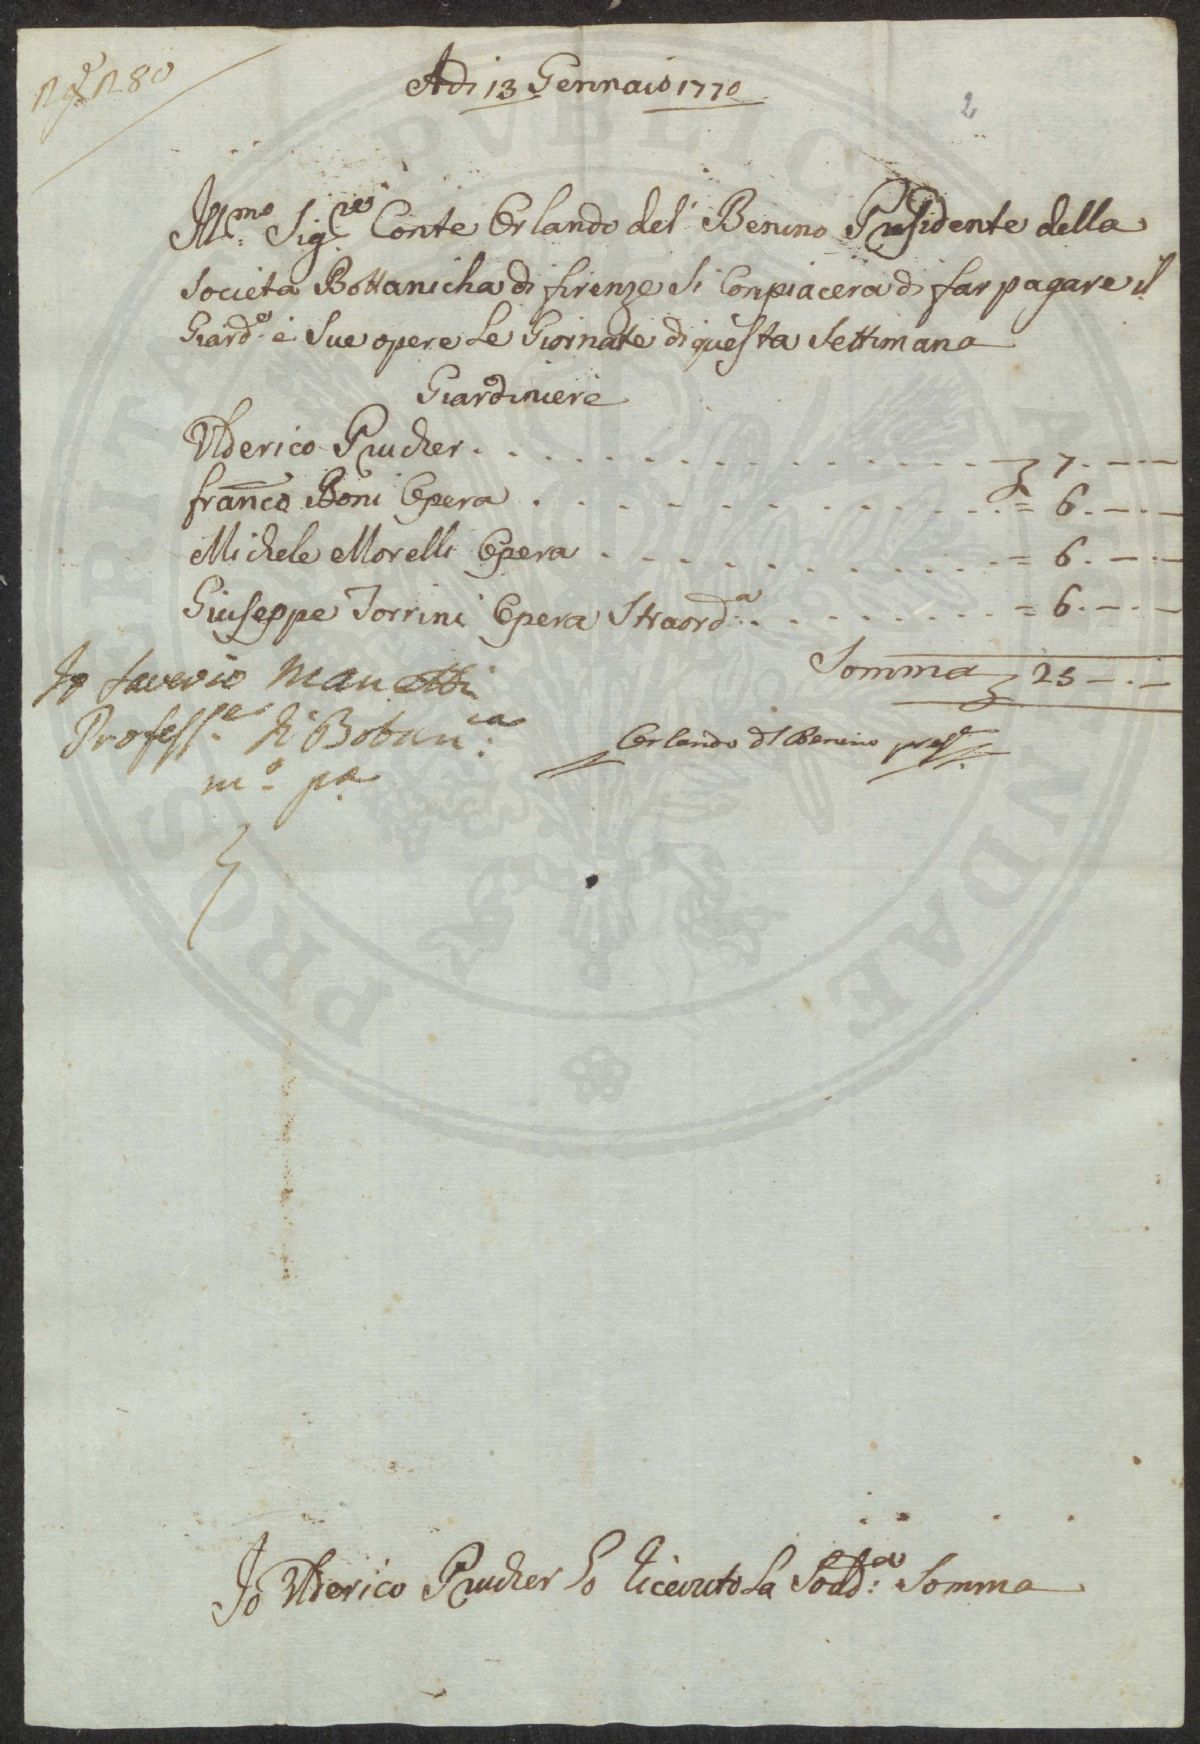 Adi 13 Gennaio 1770
2
Ill.mo Sig.re Conte Orlando del Benino Presidente della
Società Bottanicha di firenze Si Conpiacera di far pagare il
Giard.e e Sue opere Le Giornate di questa Settimana
Giardiniere
Ulderico Prucher . . . . . . . £ 7. — . —
Franco Boni Opera . . . . . . . = 6. — . —
Michele Morelli Opera . . . . . . . = 6. — . —
Giuseppe Torrini Opera Straord.a . . . . . . . = 6. — . —
Somma £ 25 — . —
Io Saverio Manetti
Profess.e di Botan.ca
m.o p.a
Orlando d'l Benino pres.e
Io Ulderico Prucher ho ricevuto La Sodd.a Somma
PROSPERITATI PVBLICAE AVGENDAE